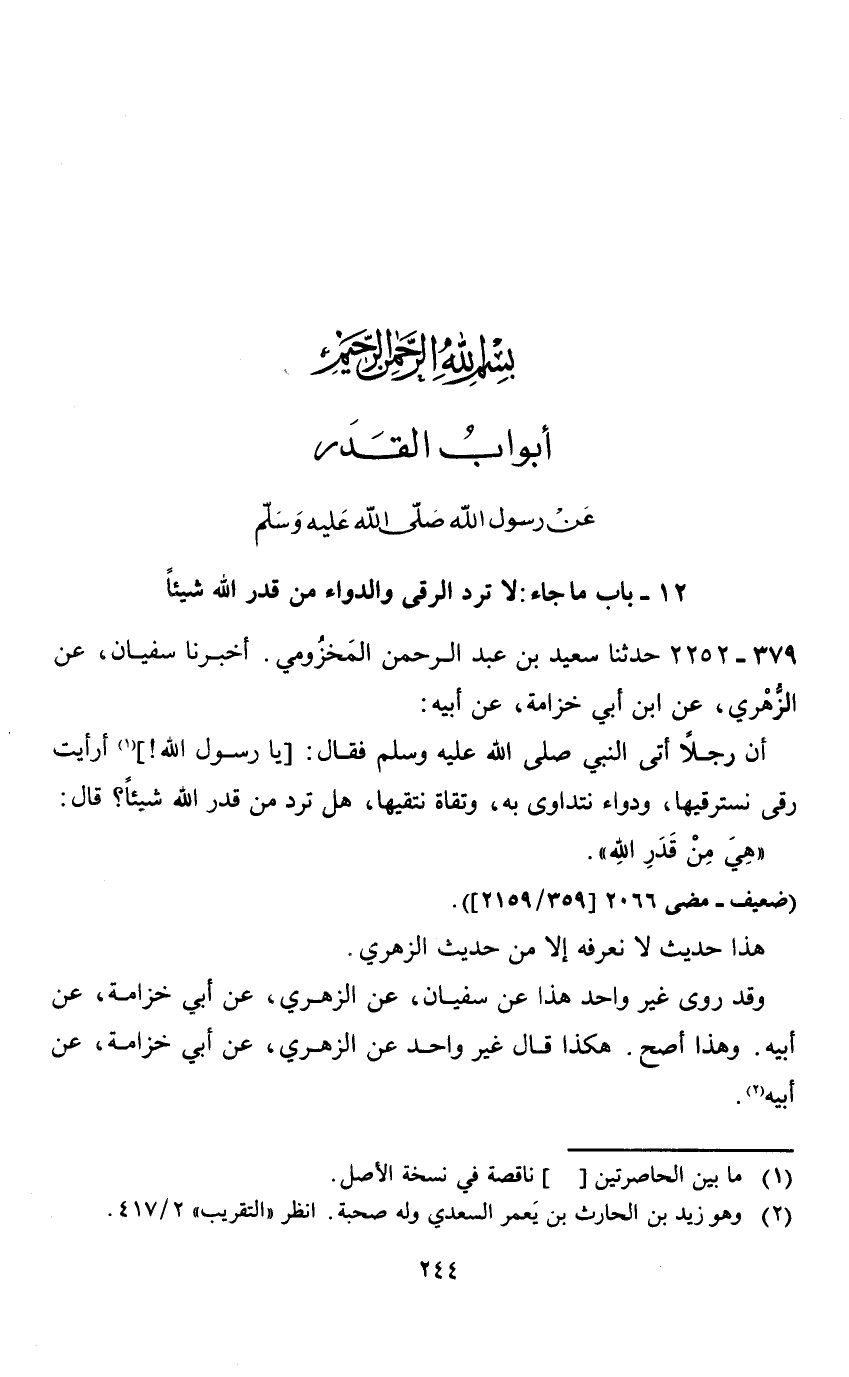 بِسْمِ اللهِ الرَّحْمٰنِ الرَّحِيمِ
أبوابُ القَدَر
عَنْ رسول الله صَلَّى الله عَليه وَسَلَّم
١٢ - باب ما جاء: لا ترد الرقى والدواء من قدر الله شيئاً
٣٧٩ - ٢٢٥٢ حدثنا سعيد بن عبد الرحمن المَخزُومي. أخبرنا سفيان، عن
الزُّهْري، عن ابن أبي خزامة، عن أبيه:
أن رجلاً أتى النبي صلى الله عليه وسلم فقال: [يا رسول الله!](١) أرأيت
رقى نسترقيها، ودواء نتداوى به، وتقاة نتقيها، هل ترد من قدر الله شيئاً؟ قال:
«هِيَ مِنْ قَدَرِ اللهِ».
(ضعيف - مضى ٢٠٦٦ [٢١٥٩/٣٥٩]).
هذا حديث لا نعرفه إلا من حديث الزهري.
وقد روى غير واحد هذا عن سفيان، عن الزهري، عن أبي خزامة، عن
أبيه. وهذا أصح. هكذا قال غير واحد عن الزهري، عن أبي خزامة، عن
أبيه(٢).
(١) ما بين الحاصرتين [ ] ناقصة في نسخة الأصل.
(٢) وهو زيد بن الحارث بن يَعمر السعدي وله صحبة. انظر «التقريب» ٤١٧/٢.
٢٤٤